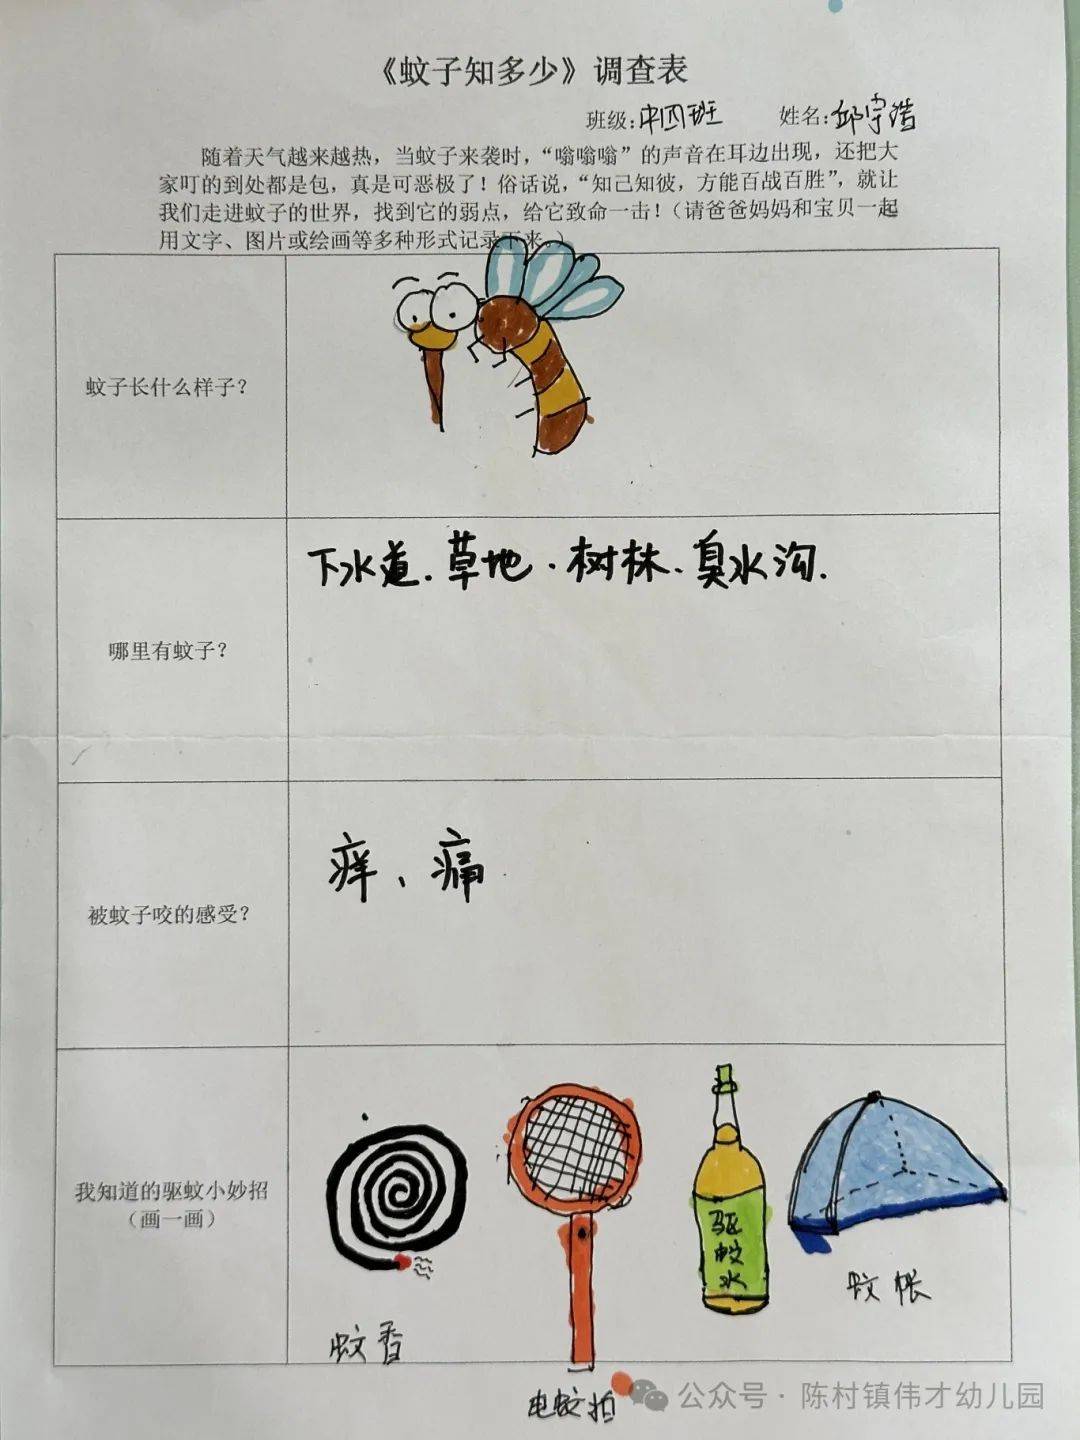 《蚊子知多少》调查表
班级:中四班 姓名:邱宇浩
随着天气越来越热，当蚊子来袭时，“嗡嗡嗡”的声音在耳边出现，还把大
家叮的到处都是包，真是可恶极了！俗话说，“知己知彼，方能百战百胜”，就让
我们走进蚊子的世界，找到它的弱点，给它致命一击！（请爸爸妈妈和宝贝一起
用文字、图片或绘画等多种形式记录下来。）
蚊子长什么样子？
哪里有蚊子？
下水道、草地、树林、臭水沟.
被蚊子咬的感受？
痒、痛
我知道的驱蚊小妙招
（画一画）
蚊香
电蚊拍
驱
蚊
水
蚊帐
公众号·陈村镇伟才幼儿园